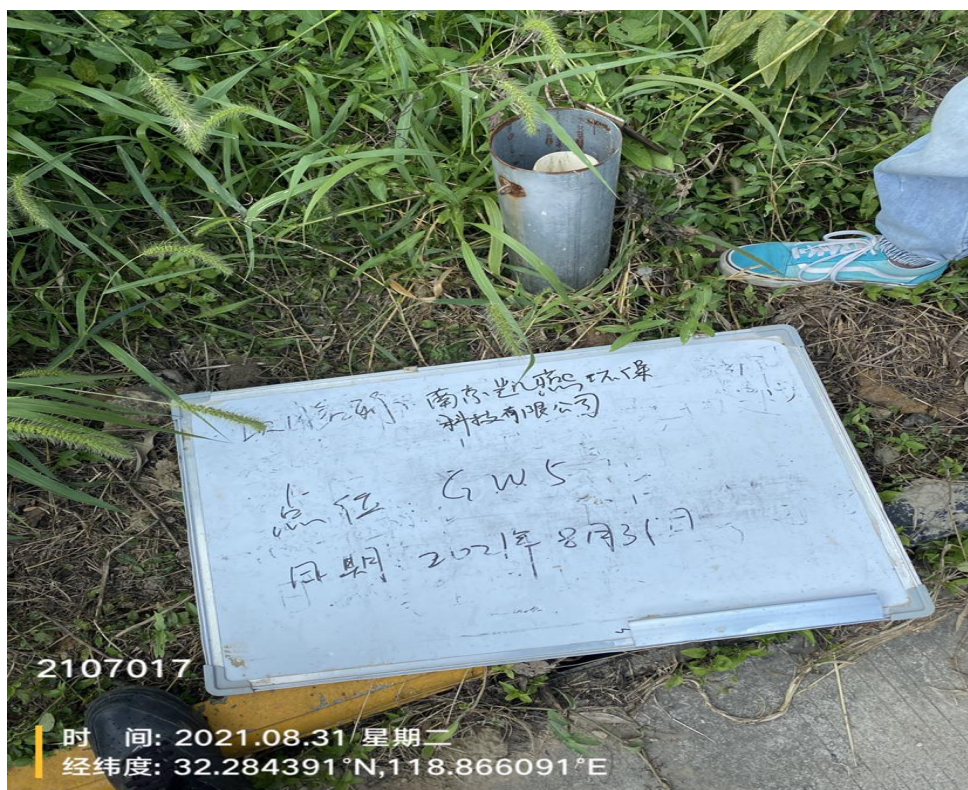 南京凯燕环保
科技有限公司
点位 GW5
日期 2021年8月31日
2107017
时 间: 2021.08.31 星期二
经纬度: 32.284391°N,118.866091°E